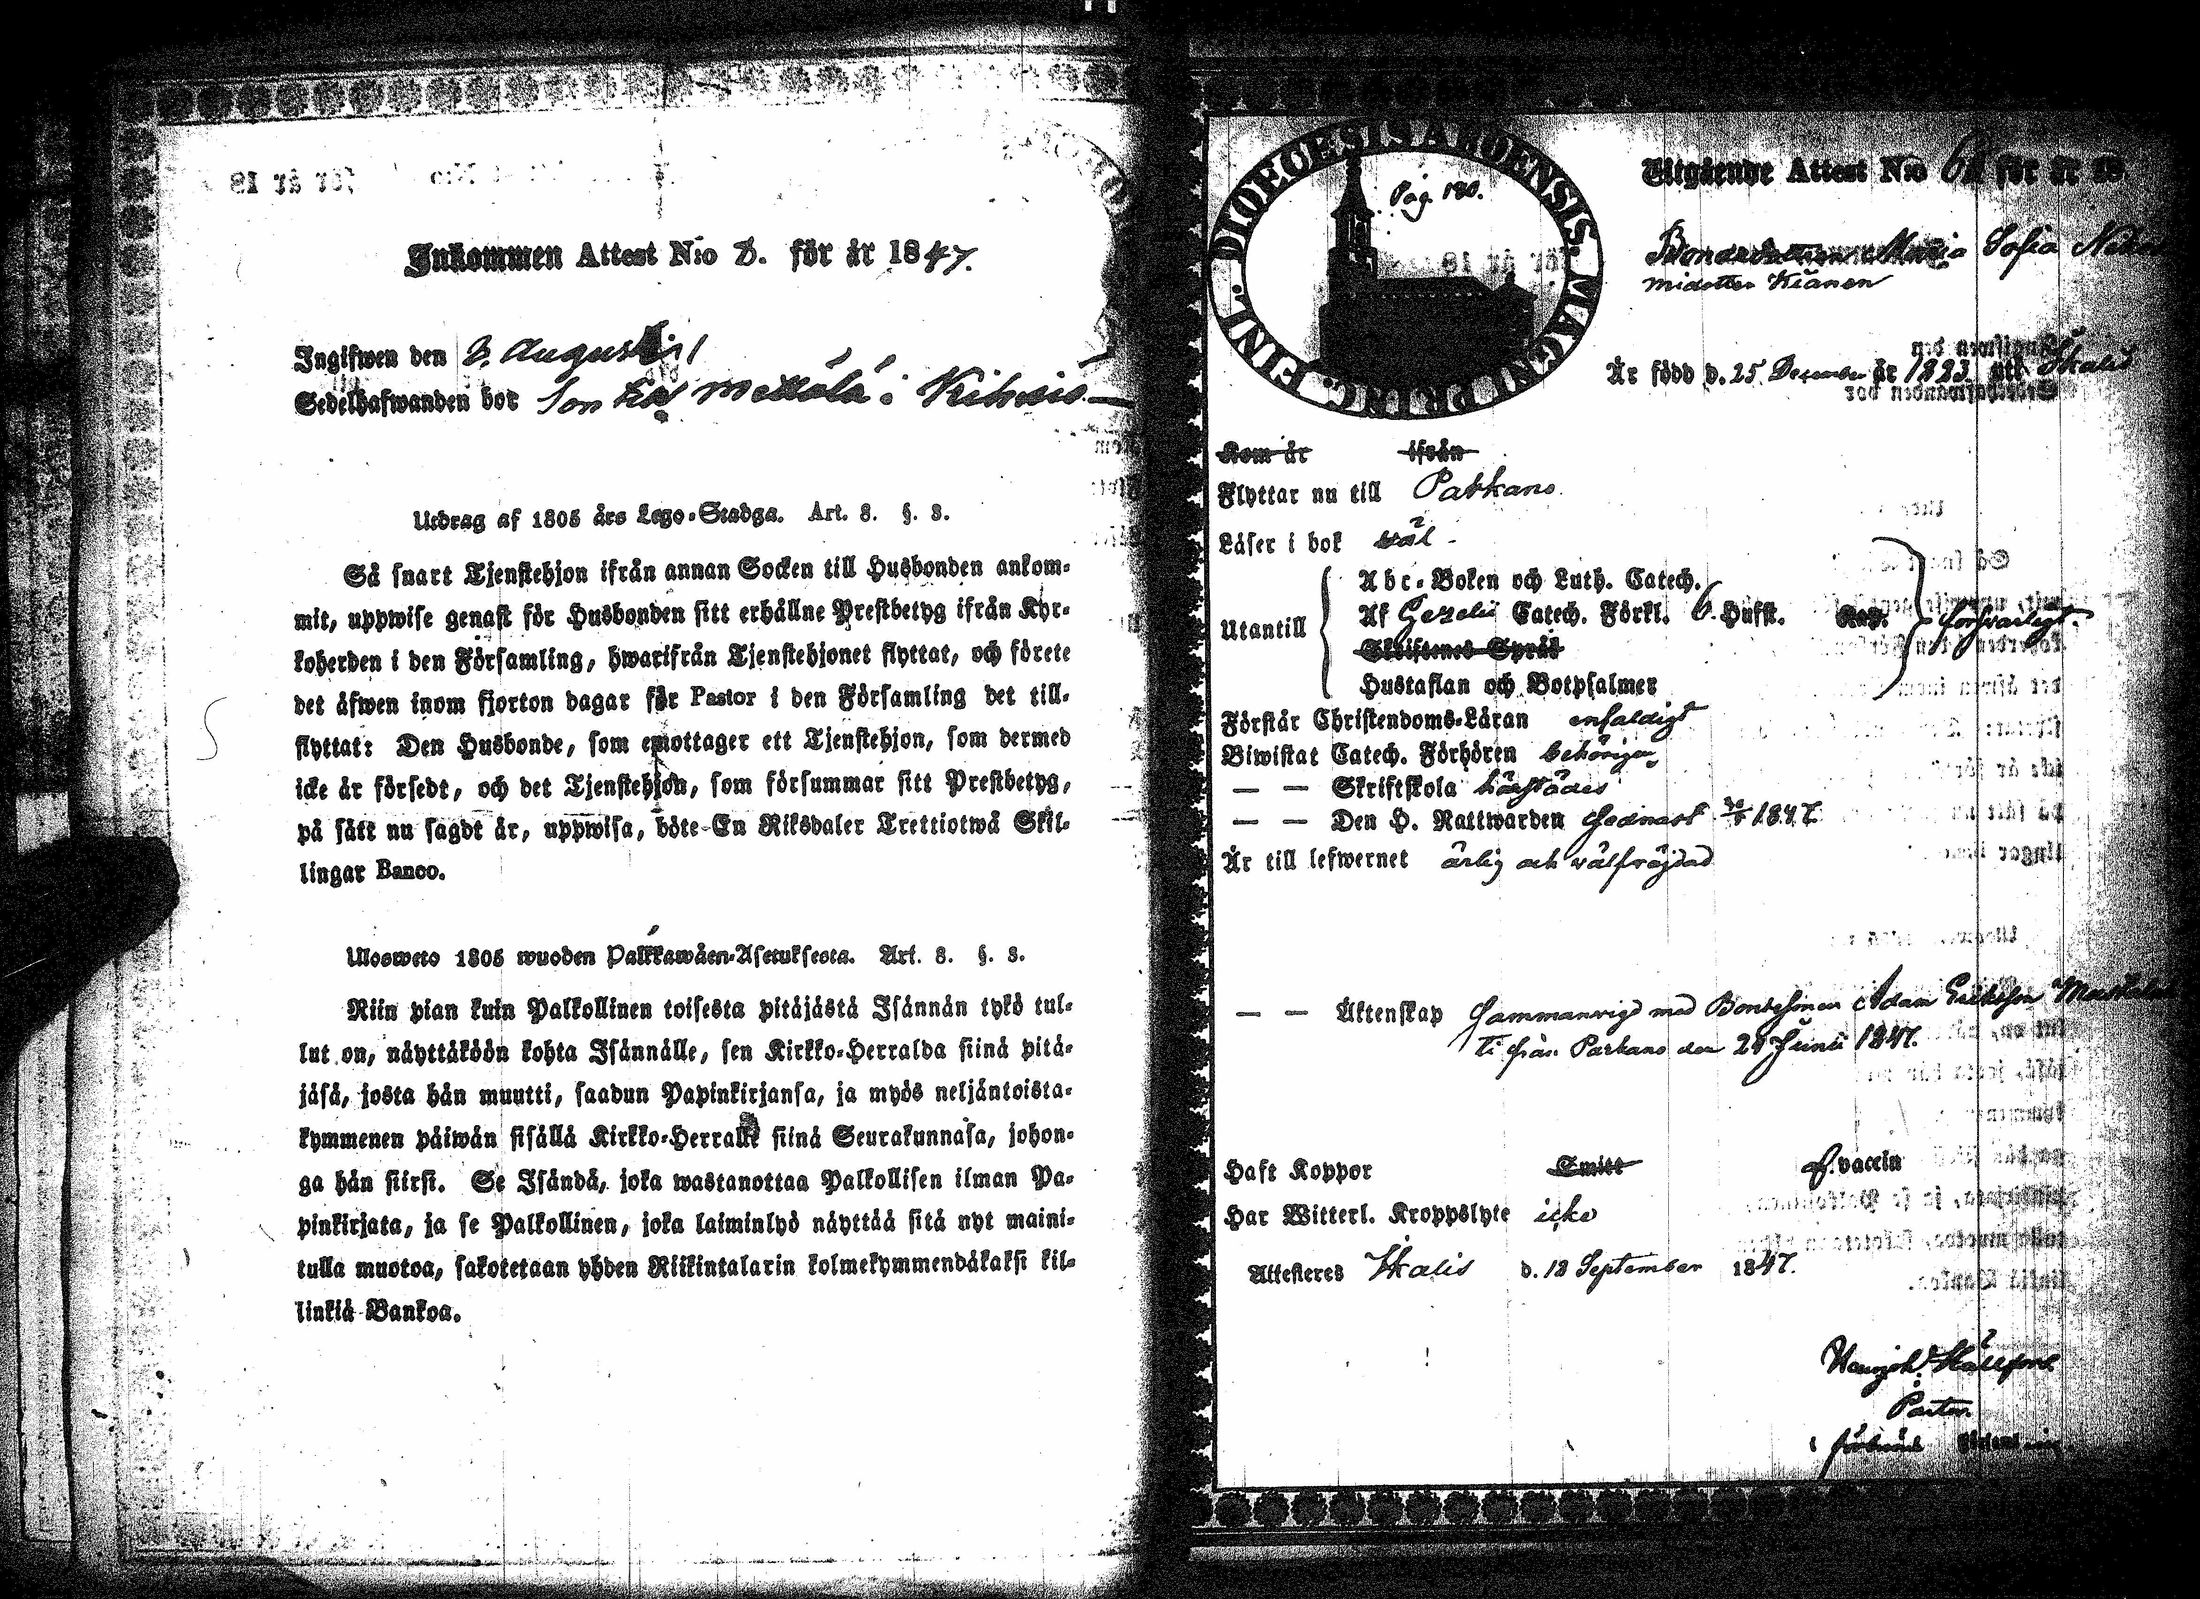 Inkommen Attest N:o 3. för år 1847.
Ingifwen den 3. Augusti
Sedelhafwanden bor i Kihniö
Utdrag af 1805 års Lego-Stadga. Art. 8. §. 3.
Så snart Tjenstehjon ifrån annan Socken till Husbonden ankom-
mit, uppwise genast för Husbonden sitt erhållne Prestbetyg ifrån Kyr-
koherden i den Församling, hwarifrån Tjenstehjonet flyttat, och förete
det äfwen inom fjorton dagar för Pastor i den Församling det till-
flyttat: Den Husbonde, som emottager ett Tjenstehjon, som dermed
icke är försedt, och det Tjenstehjon, som försummar sitt Prestbetyg,
på sätt nu sagdt är, uppwisa, böte En Riksdaler Trettiotwå Skil-
lingar Banco.
Ulosweto 1805 wuoden Palkkawäen-Asetuksesta. Art. 8. §. 3.
Niin pian kuin Palkollinen toisesta pitäjästä Isännän tykö tul-
lut on, näyttäköön kohta Isännälle, sen Kirkko-Herralda siinä pitä-
jäsä, josta hän muutti, saadun Papinkirjansa, ja myös neljäntoista-
kymmenen päiwän sisällä Kirkko-Herralle siinä Seurakunnasa, johon-
ga hän siirsi. Se Isändä, joka wastanottaa Palkollisen ilman Pa-
pinkirjata, ja se Palkollinen, joka laiminlyö näyttää sitä nyt maini-
tulla muotoa, sakotetaan yhden Riikintalarin kolmekymmendäkaksi kil-
linkiä Bankoa.
DIOECESIS ABOENSIS. MAGNI PRINC. FINL.
Pag. 180.
Utgående Attest N:o för år 18
Maria Sofia
midotter
Är född d. 25 December år 1823 uti Ikalis
Kom år ifrån
Flyttar nu till Parkano
Läser i bok wäl
Utantill
Abc-Boken och Luth. Catech.
Af Gezelii Catech. Förkl. 6. Hufst. Kap. försvarligt.
Skriftenes Språk
Hustaflan och Botpsalmer
Förstår Christendoms-Läran enfaldigt
Biwistat Catech. Förhören behörigen
— — Skriftskola härstädes
— — Den H. Nattwarden sednast 1847
Är till lefwernet ärlig och välfräjdad
— — Äktenskap Sammanvigd med Bondesonen Adam Eriksson
från Parkano den Junii 1847.
Haft Koppor Smitt af vaccin
Har Witterl. Kroppslyte icke
Attesteres Ikalis d. 18 September 1847.
Pastor